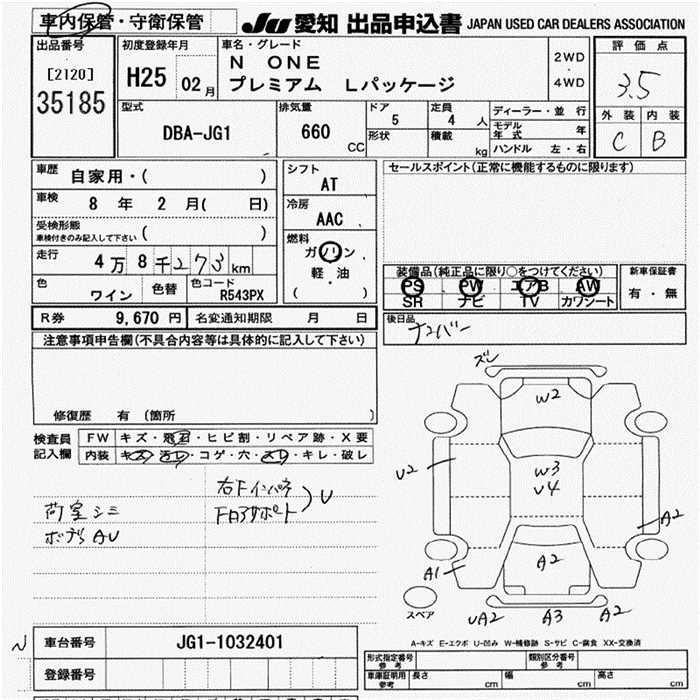 車内保管・守衛保管 JU 愛知 出品申込書 JAPAN USED CAR DEALERS ASSOCIATION
出品番号 [2120] 35185
初度登録年月 H25 02月
車名・グレード N ONE プレミアム Lパッケージ
2WD・4WD
評価点 3.5
外装 C 内装 B
型式 DBA-JG1
排気量 660 CC
ドア 5 形状
定員 4 人 積載 kg
ディーラー・並行
モデル年式 年
ハンドル 左・右
車歴 自家用・( )
車検 8 年 2 月( 日)
受検形態 車検付きのみ記入して下さい ( )
走行 4万8千273km
色 ワイン 色替 色コード R543PX
シフト AT
冷房 AAC
燃料 ガソリン・軽・油 ( )
セールスポイント(正常に機能するものに限ります)
装備品(純正品に限り○をつけてください)
PS PW エアB AW
SR ナビ TV カワシート
新車保証書 有・無
R券 9,670 円 名変通知期限 月 日
後日品 ナンバー
注意事項申告欄(不具合内容等は具体的に記入して下さい)
修復歴 有 (箇所 )
検査員記入欄
FW キズ・飛石・ヒビ割・リペア跡・X要
内装 キズ・汚レ・コゲ・穴・スレ・キレ・破レ
荷室シミ
ボデーAU
右Fインパネ
FロアサポートU
ズレ
W2
U2
W3
U4
A2
A1
A2
スペア
UA2 A3 A2
A-キズ E-エクボ U-凹み W-補修跡 S-サビ C-腐食 XX-交換済
車台番号 JG1-1032401
登録番号
形式指定番号 参考 類別区分番号 参考
車庫証明用 参考 長さ cm 幅 cm 高さ cm